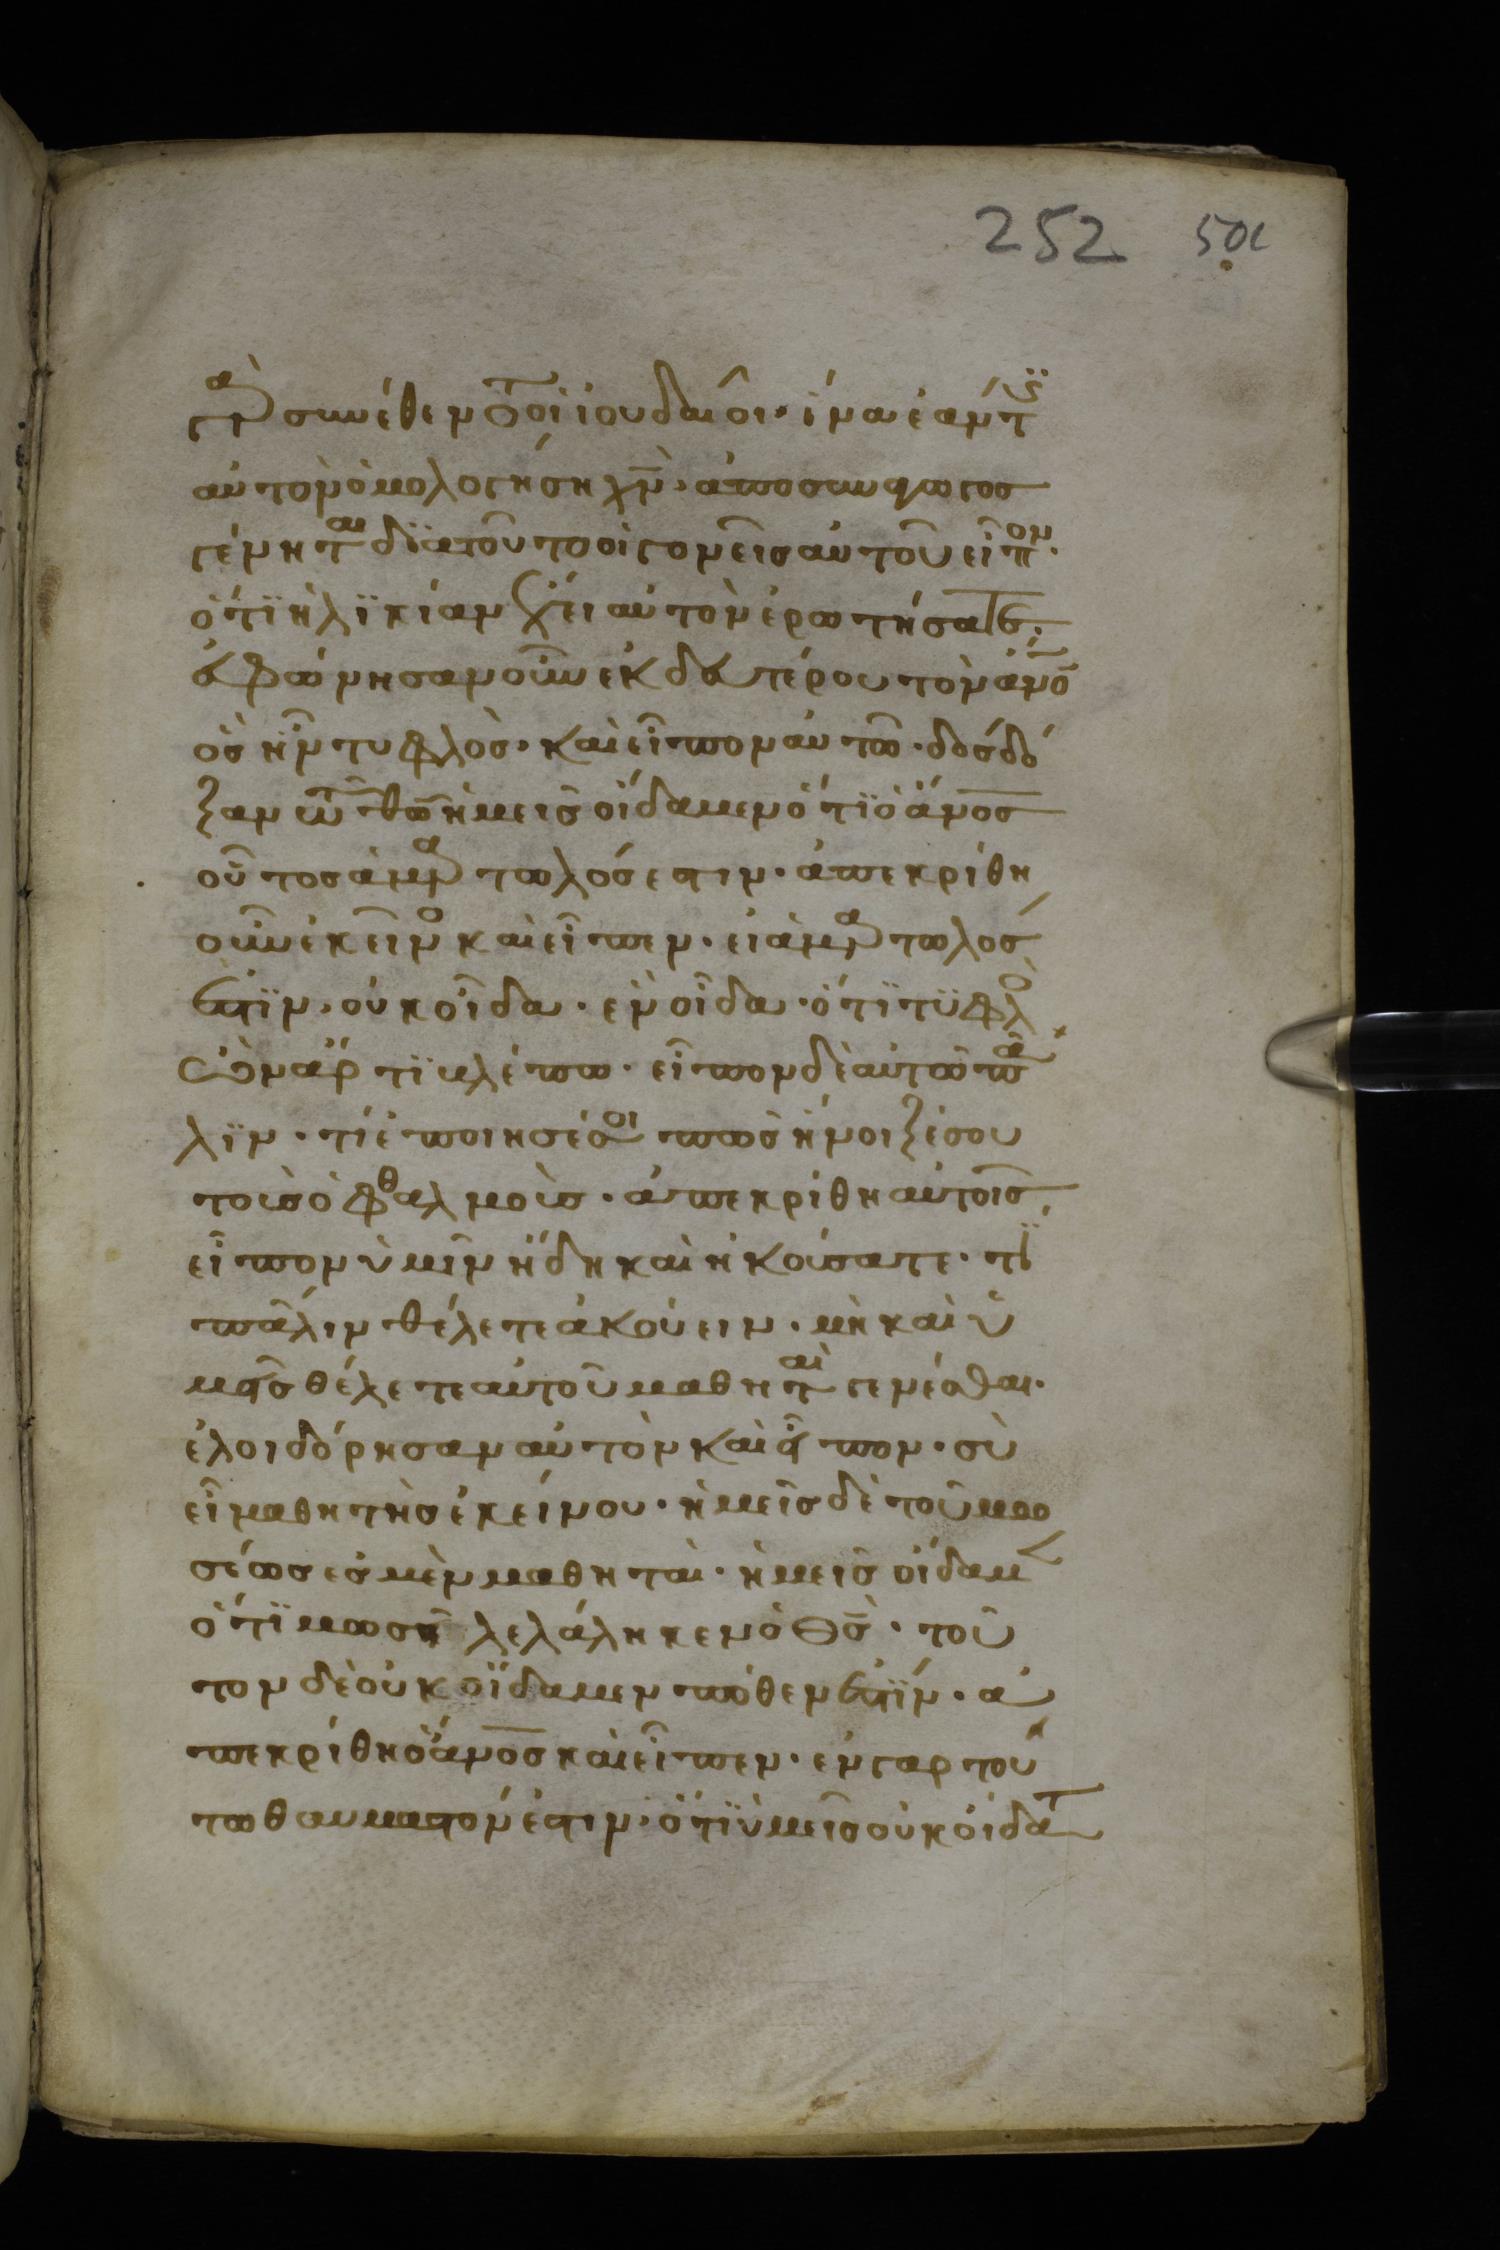 252 501
γὰρ συνέθεντο οἱ ἰουδαῖοι· ἵνα ἐάν τις
αὐτὸν ὁμολογήσῃ χν· ἀποσυναγωγος
γένηται διατοῦτο οἱ γονεῖς αὐτοῦ εἶπον·
ὅτι ἡλικίαν ἔχει αὐτὸν ἐρωτήσατε·
ἐφώνησαν οὖν ἐκ δευτέρου τὸν ἄνον
ὃς ἦν τυφλὸς· καὶ εἶπον αὐτῶ· δὸς δό
ξαν τῶ θῶ ἡμεῖς οἴδαμεν ὅτι ὁ ἄνος
οὗτος ἁμαρτωλός ἐστιν· ἀπεκρίθη
οὖν ἐκεῖνος καὶ εἶπεν· εἰ ἁμαρτωλός
ἐστιν· οὐκ οἶδα· ἓν οἶδα· ὅτι τυφλὸς
ὢν ἄρτι βλέπω· εἶπον δὲ αὐτῶ πά
λιν· τί ἐποίησέ σοι πῶς ἤνοιξέ σου
τοὺς ὀφθαλμοὺς· ἀπεκρίθη αὐτοῖς·
εἶπον ὑμῖν ἤδη καὶ ἠκούσατε· τί
πάλιν θέλετε ἀκούειν· μὴ καὶ ὑ
μεῖς θέλετε αὐτοῦ μαθηταὶ γενέσθαι·
ἐλοιδόρησαν αὐτὸν καὶ εἶπον· σὺ
εἶ μαθητὴς ἐκείνου· ἡμεῖς δὲ τοῦ μω
σέως ἐσμὲν μαθηταὶ· ἡμεῖς οἴδαμεν
ὅτι μωσῆ λελάληκεν ὁ θς· τοῦ
τον δὲ οὐκ οἴδαμεν πόθεν ἐστίν· ἀ
πεκρίθη ὁ ἄνος καὶ εἶπεν· ἐν γαρ τού
τω θαυμαστόν ἐστιν· ὅτι ὑμεῖς οὐκ οἴδατε